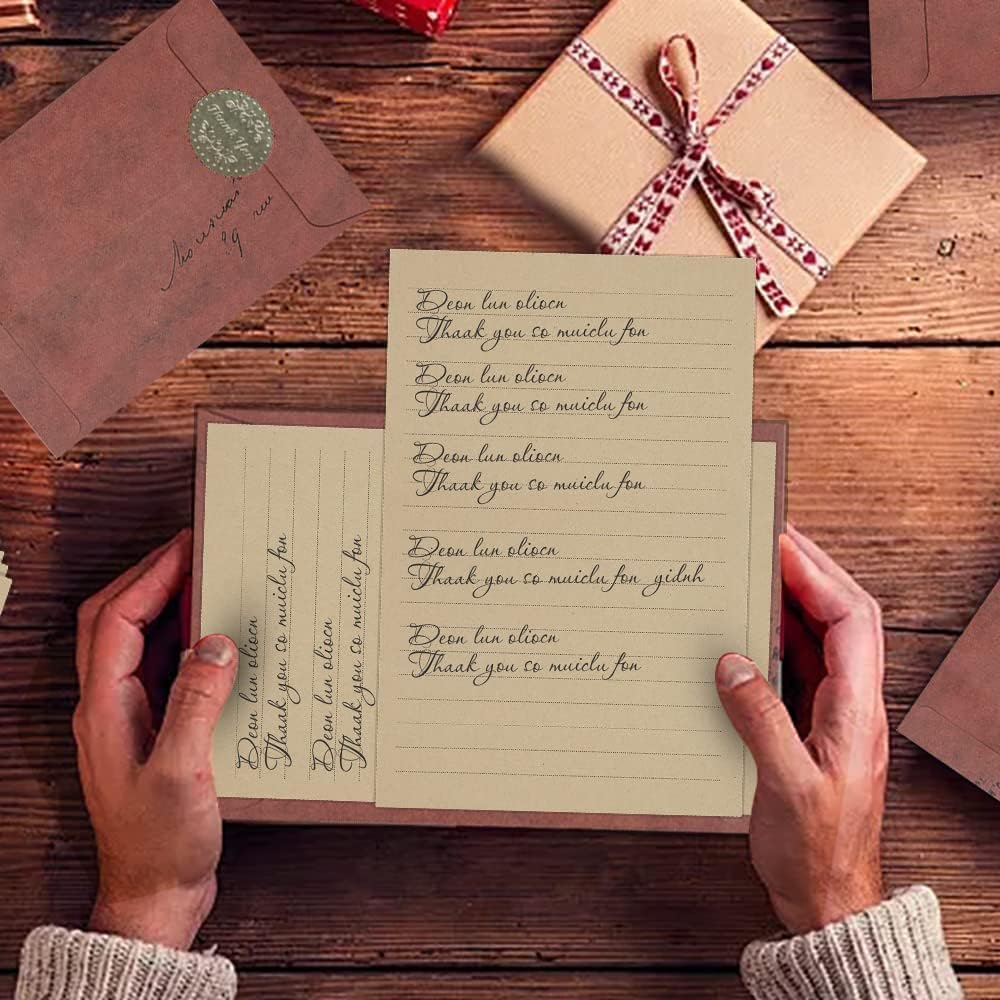 Thank You
Deon lun oliocn
Thaak you so muiclu fon
Deon lun oliocn
Thaak you so muiclu fon
Deon lun oliocn
Thaak you so muiclu fon
Deon lun oliocn
Thaak you so muiclu fon gidnh
Deon lun oliocn
Thaak you so muiclu fon
Deon lun oliocn
Thaak you so muiclu fon
Deon lun oliocn
Thaak you so muiclu fon